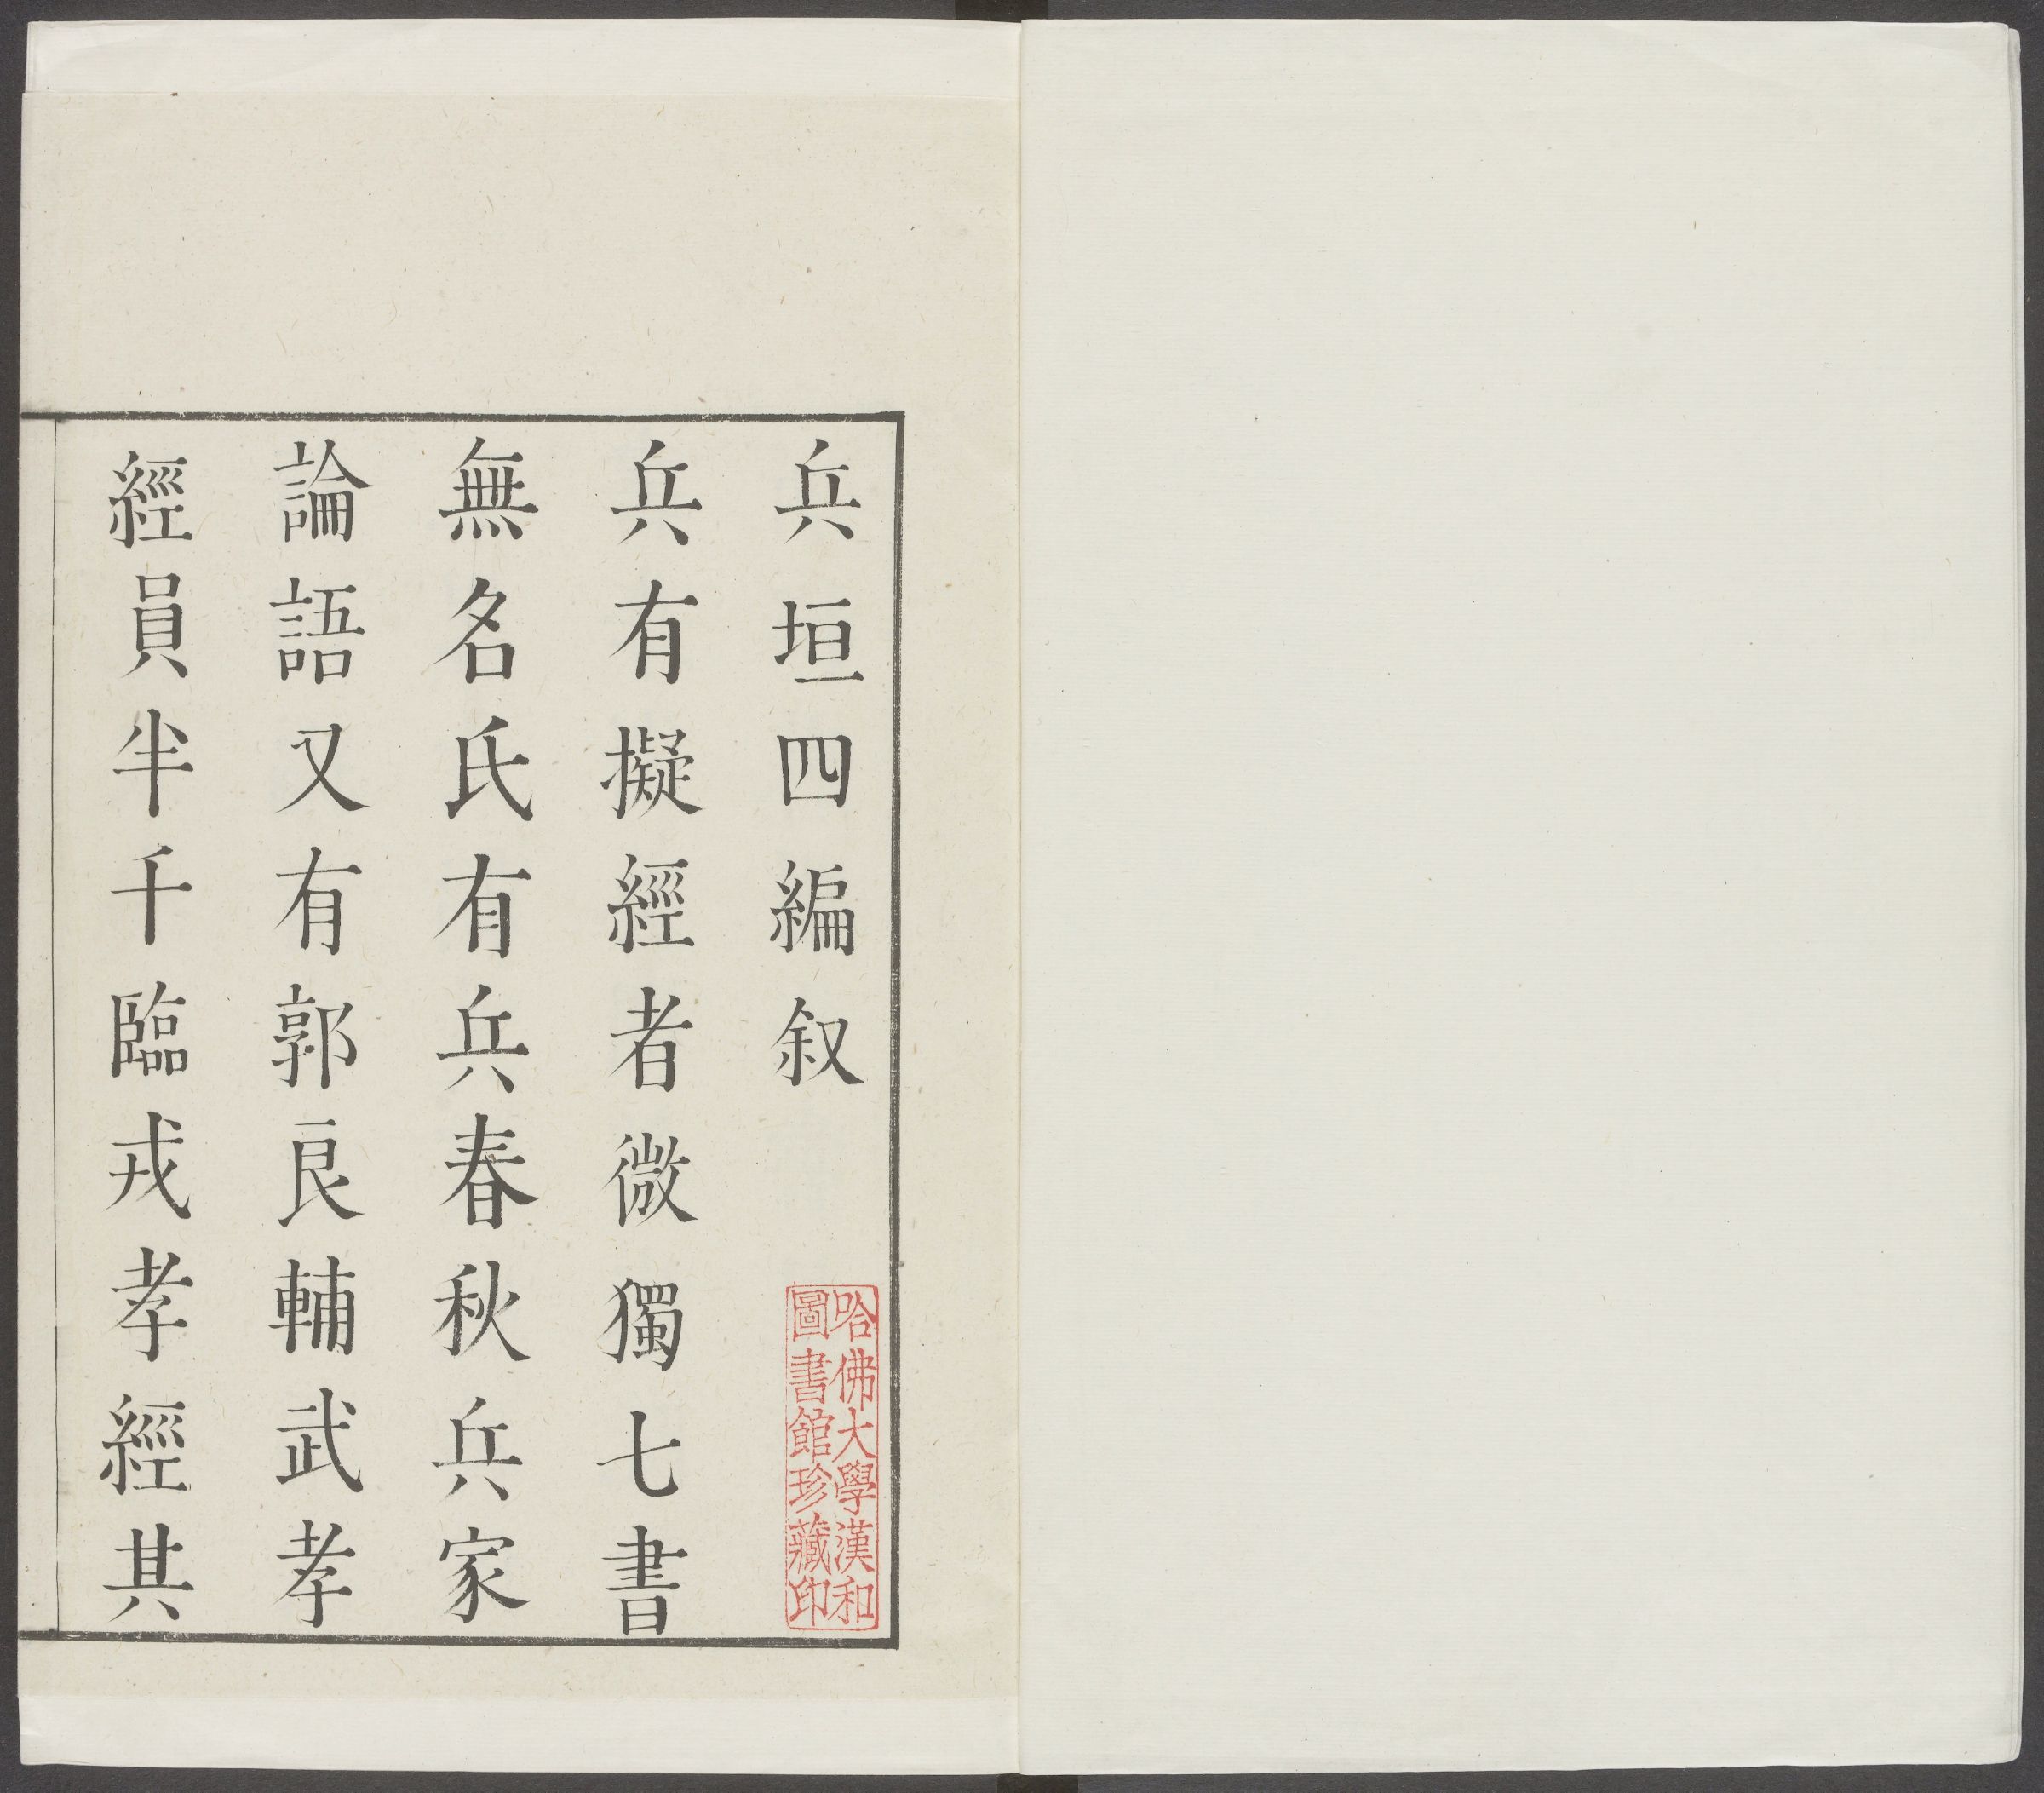 兵垣四編叙
哈佛大學漢和
圖書館珍藏印
兵有擬經者微獨七書
無名氏有兵春秋兵家
論語又有郭良輔武孝
經員半千臨戎孝經其